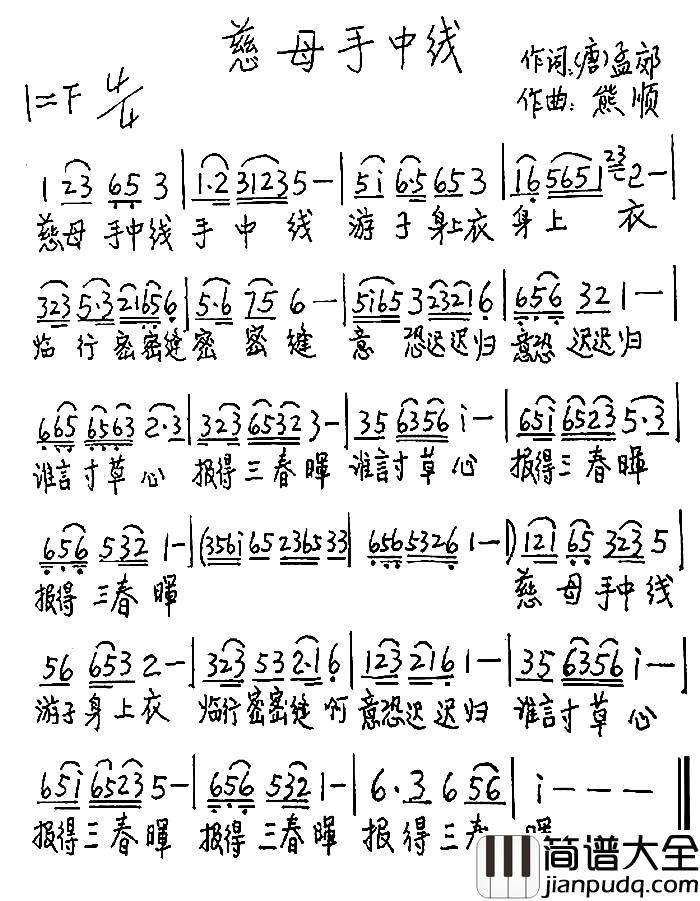 慈母手中线
作词:(唐)孟郊
1=F 4/4
作曲:熊顺
1 23 65 3 | 1·2 31235 - | 5i 6·5 65 3 | 16 5651 23 2 - |
慈母 手中线 手 中 线 游 子 身上衣 身 上 衣
323 5·3 21656 | 5·6 75 6 - | 5i65 3 2321 6 | 656 32 1 - |
临 行 密密缝 密 密 缝 意 恐迟迟归 意恐 迟迟归
665 6563 2·3 | 323 6532 3 - | 35 6356 i - | 65i 6523 5·3 |
谁言寸草心 报得三春暉 谁言寸草心 报得三春暉
656 532 1 - | (356i 65 236533 | 656 5326 1 - ) | 121 65 323 5 |
报得三春暉 慈母手中线
56 653 2 - | 323 53 2·1 6 | 123 216 1 - | 35 6356 i - - |
游子身上衣 临行密密缝 啊 意恐迟迟归 谁言寸草心
65i 6523 5 - | 656 532 1 - | 6·3 6 56 | i - - -
报得三春暉 报得三春暉 报得三春 暉
简谱大全
jianpudq.com